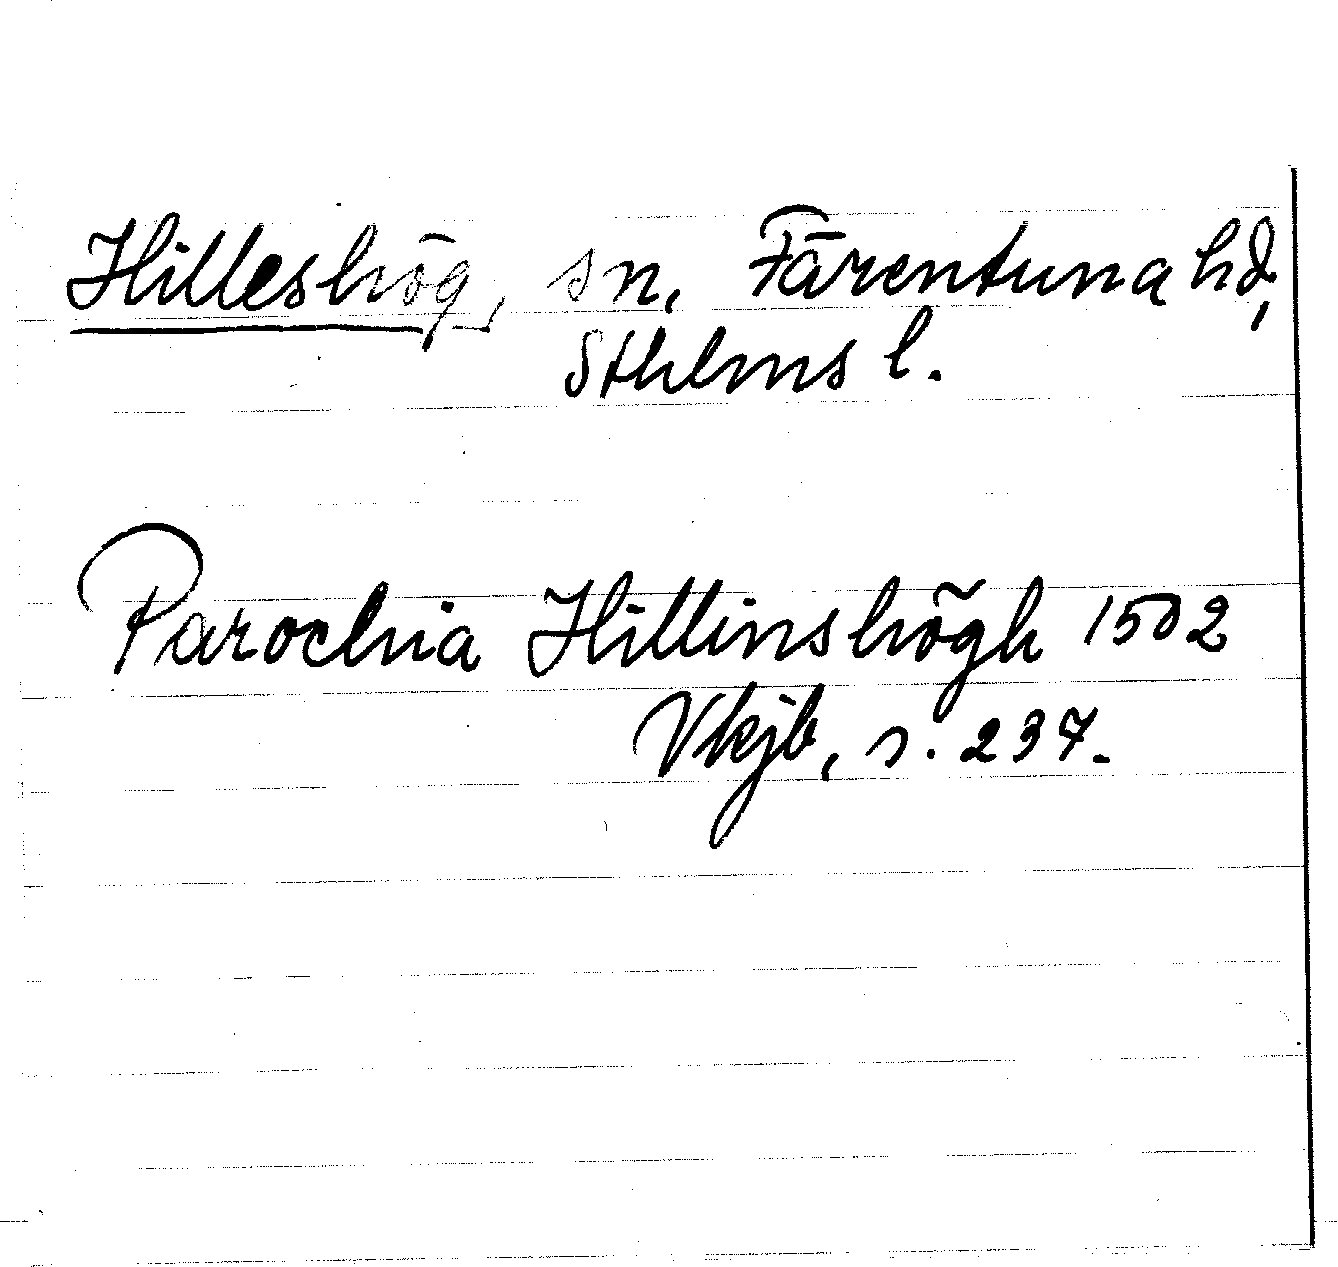 Hilleshög, sn, Färentuna hd,
Sthlms l.
Parochia Hillinshögh 1502
Vkjb, s. 237.